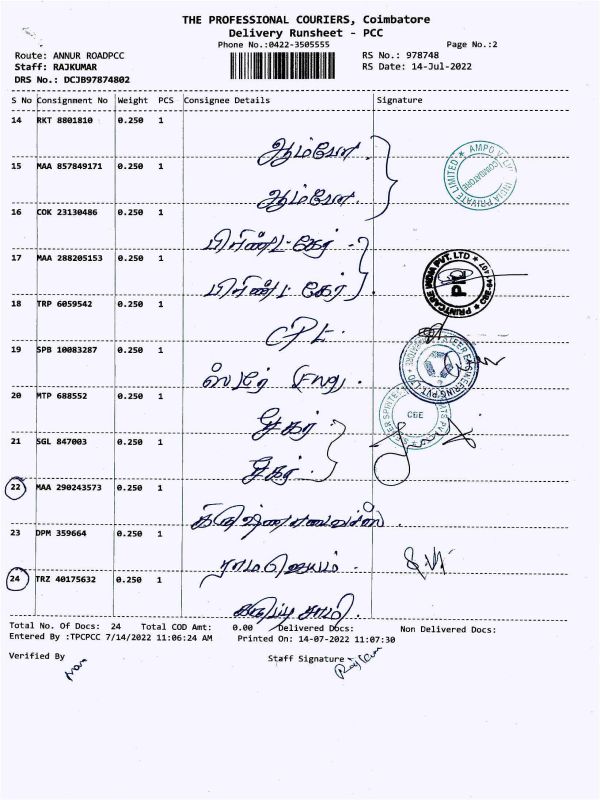 THE PROFESSIONAL COURIERS, Coimbatore
Delivery Runsheet - PCC
Phone No.:0422-3505555 Page No.:2
Route: ANNUR ROADPCC RS No.: 978748
Staff: RAJKUMAR RS Date: 14-Jul-2022
DRS No.: DCJB97874802
S No Consignment No Weight PCS Consignee Details Signature
14 RKT 8801810 0.250 1
ஆம்போ.
15 MAA 857849171 0.250 1
ஆம்போ.
16 COK 23130486 0.250 1
பிரிண்ட் கேர்
17 MAA 288205153 0.250 1
பிரிண்ட் கேர்
18 TRP 6059542 0.250 1
19 SPB 10083287 0.250 1
20 MTP 688552 0.250 1
21 SGL 847003 0.250 1
22 MAA 290243573 0.250 1
23 DPM 359664 0.250 1
ராமஜெயம்.
24 TRZ 40175632 0.250 1
கருப்பு சாமி.
AMPO VALVES INDIA PRIVATE LIMITED
COIMBATORE
PRINTCARE INDIA PVT. LTD
CBE
Total No. Of Docs: 24 Total COD Amt: 0.00 Delivered Docs: Non Delivered Docs:
Entered By :TPCPCC 7/14/2022 11:06:24 AM Printed On: 14-07-2022 11:07:30
Verified By Staff Signature